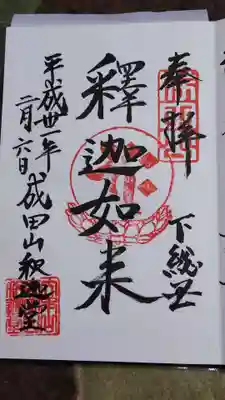 奉拝
下総国
釋迦如来
平成丗一年
二月六日
成田山釈迦堂